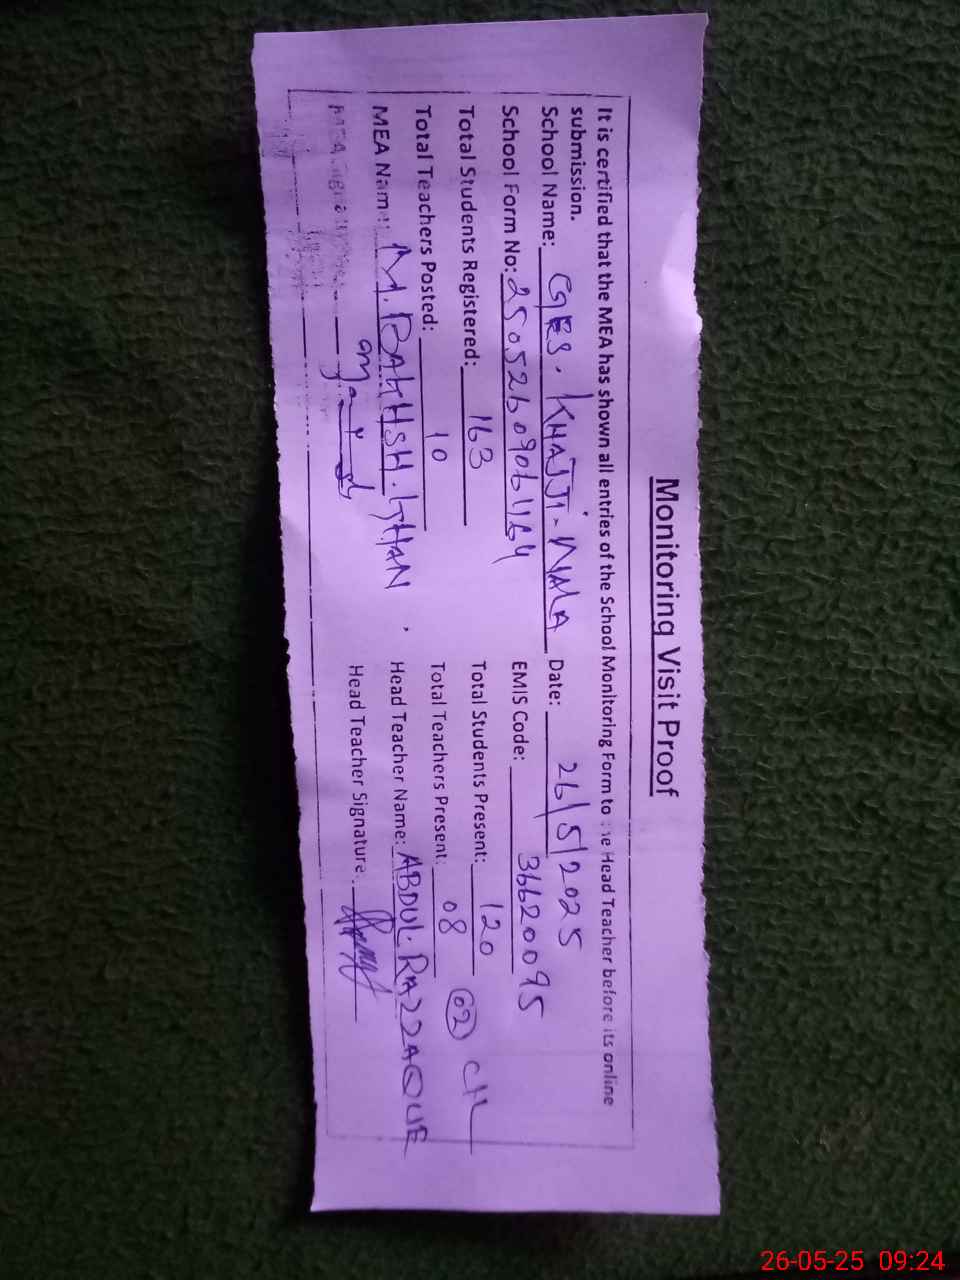 Monitoring Visit Proof
It is certified that the MEA has shown all entries of the School Monitoring Form to the Head Teacher before its online
submission.
School Name: GES. KHAJJI-WALA Date: 26/5/2025
School Form No: 25052609061164 EMIS Code: 36620095
Total Students Registered: 163 Total Students Present: 120
Total Teachers Posted: 10 Total Teachers Present: 08 (02) C/L
MEA Name: M.BAKHSH.KHAN Head Teacher Name: ABDUL.RAZZAQUE
Head Teacher Signature:
26-05-25 09:24